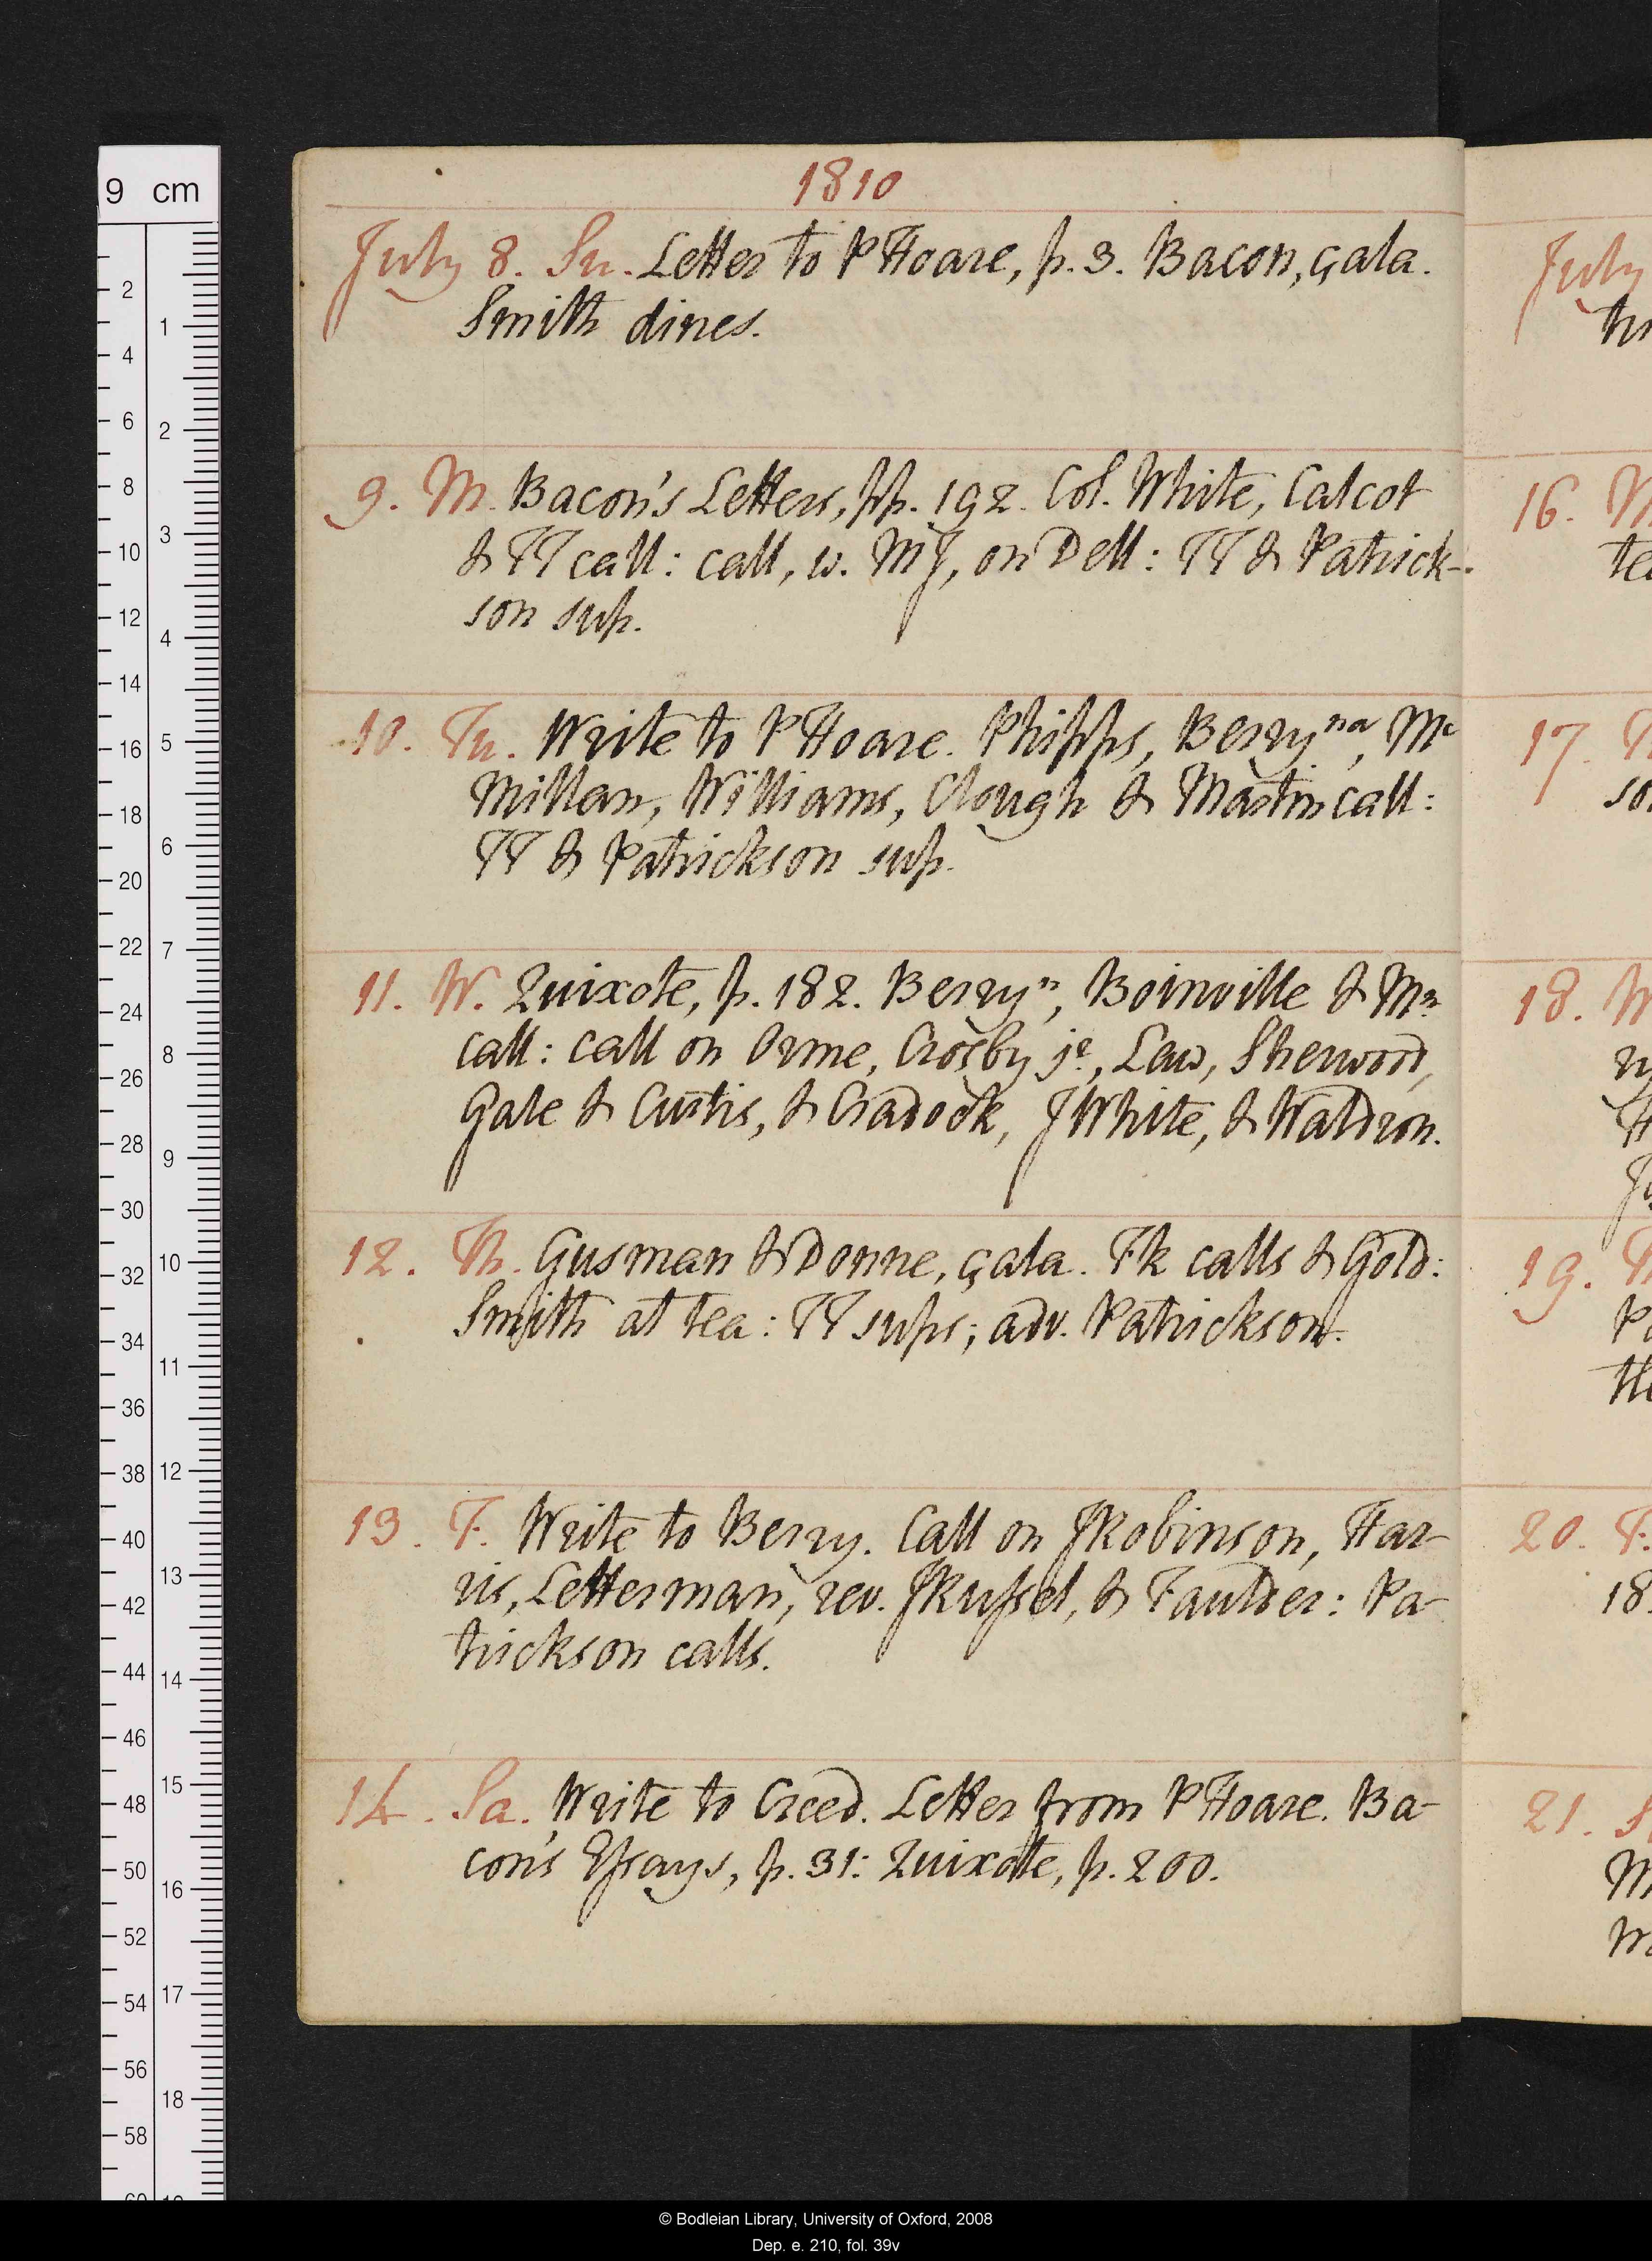 1810
July 8. Su. Letter to P Hoare, p. 3. Bacon, çala.
Smith dines.
9. M. Bacon's Letters, pp. 192. Col. White, Calcot
& TT call: call, w. MJ, on Dell: TT & Patrick-
son sup.
10. Tu. Write to P Hoare. Phipps, Berry na, Mc
Millan, Williams, Clough & Martin call:
TT & Patrickson sup.
11. W. Quixote, p. 182. Berry n, Boinville & Mrs
call: call on Orme, Crosby jr, Law, Sherwood,
Gale & Curtis, & Cradock, J White, & Waldron.
12. Th. Gusman & Donne, çala. Fk calls & Gold:
Smith at tea: TT sups; adv. Patrickson.
13. F. Write to Berry. Call on J Robinson, Har-
ris, Letterman, rev. J Russel, & Faulder: Pa-
trickson calls.
14. Sa. Write to Creed. Letter from P Hoare. Ba-
con's Essays, p. 31: Quixote, p. 200.
July
16. M
te
17. T
so
18. W
19. T
P
20. F.
18
21. S
M
9 cm
2
4
6
8
10
12
14
16
18
20
22
24
26
28
30
32
34
36
38
40
42
44
46
48
50
52
54
56
58
60
1
2
3
4
5
6
7
8
9
10
11
12
13
14
15
16
17
18
© Bodleian Library, University of Oxford, 2008
Dep. e. 210, fol. 39v